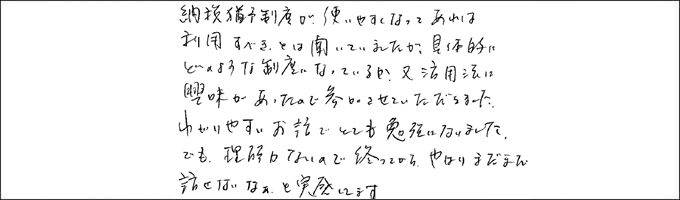 納税猶予制度が、使いやすくなってあれば
利用すべき、とは聞いていましたが、具体的に
どのような制度になっているか、又活用法に
興味があったので参加させていただきました。
わかりやすいお話でとても勉強になりました。
でも、理解力ないので終ってから、やはりまだまだ
話せないなぁ、と実感してます